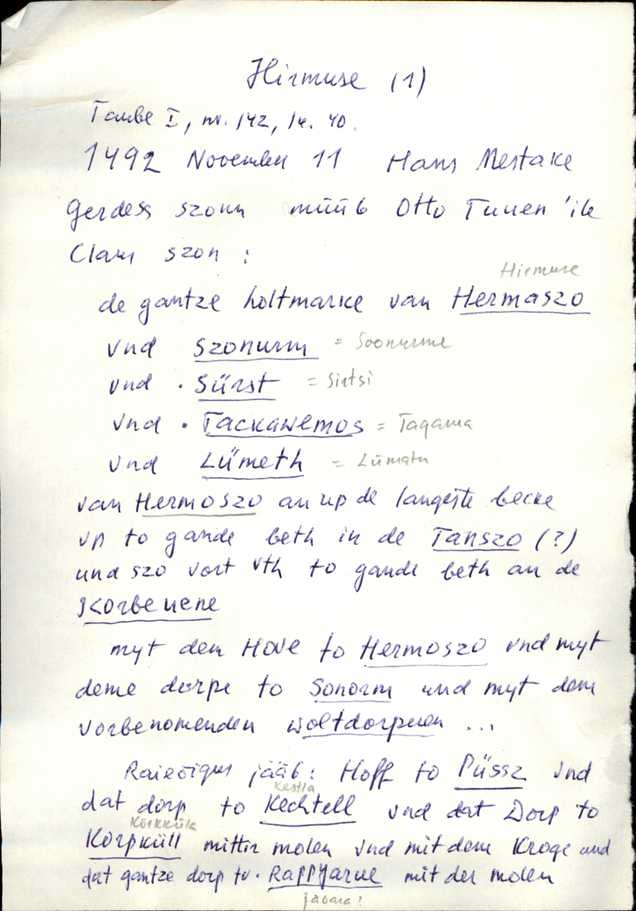 Hirmuse (1)
Taube I, nr. 142, lk. 40.
1492 November 11 Hans Mestake
Gerdess szonn müüb Otto Tuuen 'ile
Claus szon:
Hirmuse
de gantze holtmarke van Hermaszo
vnd Szonurm = Soonurme
vnd · Sürst = Sirtsi
vnd · Tackawemos = Tagama
vnd Lümeth = Lümatu
van Hermoszo an up de langeste becke
up to gande beth in de Tanszo (?)
und szo vort vth to gande beth an de
Korbenene
myt dem Hove to Hermoszo vnd myt
deme dorpe to Sonorm und myt dem
vorbenomenden woltdorperen ...
Raieõigus jääb: Hoff to Püssz vnd
Kestla
dat dorp to Kechtell vnd dat Dorp to
Körkküla
Korpküll mitter molen vnd mit dem Kroge und
dat gantze dorp to · Rappjarue mit der molen
jabara!